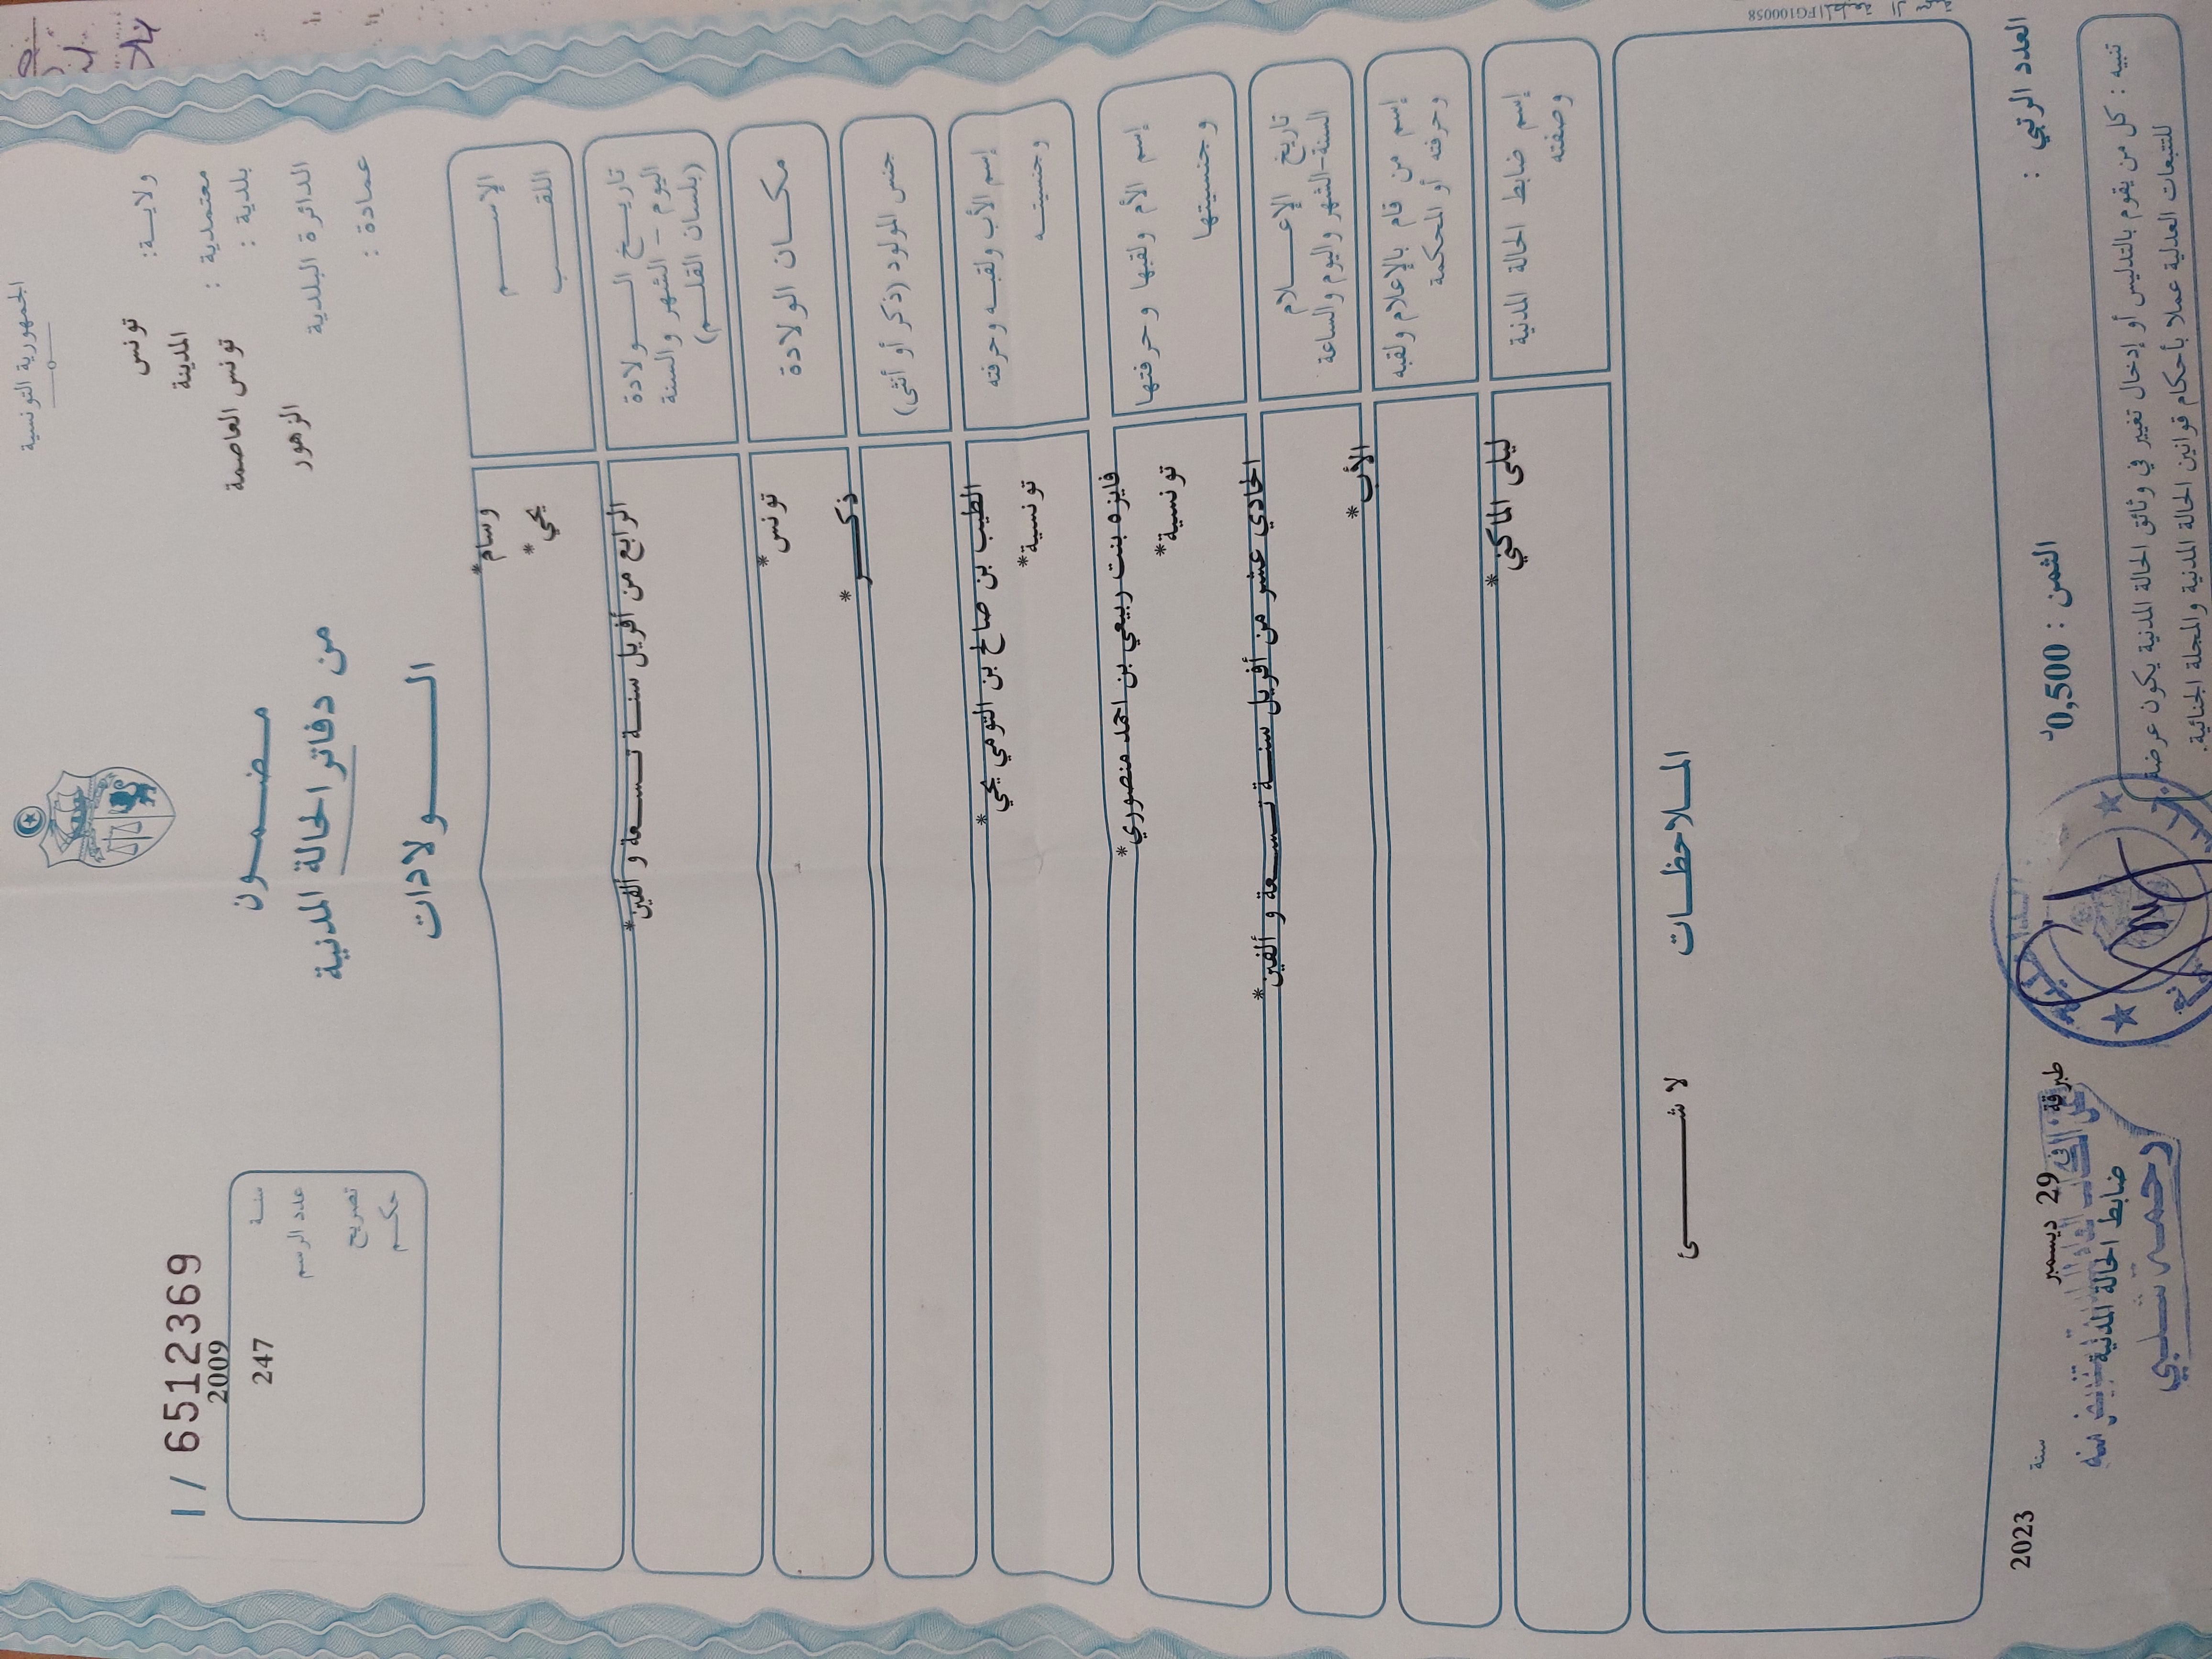 الجمهورية التونسية
ولايـة: تونس
معتمدية : المدينة
بلدية : تونس العاصمة
الدائرة البلدية الزهور
عمادة :
مـضـمـون
من دفاتر الحالة المدنية
الـولادات
I / 6512369
2009
سنـة
247
عدد الرسم
تصريح
حكـم
الإســم
وسام*
اللقـب
يحي*
تاريـخ الـولادة
اليوم - الشهر والسنة
(بلسان القلـم)
الرابع من أفريل سنـة تـسـعة و ألفين*
مكـان الولادة
تونس*
جنس المولود (ذكر أو أنثى)
ذكـر*
إسم الأب ولقبـه وحرفته
الطيب بن صالح بن التومي يحي*
وجنسيتـه
تونسية*
إسم الأم ولقبها وحرفتها
فايزه بنت ربيعي بن احمد منصوري*
وجنسيتها
تونسية*
تاريخ الإعــلام
السنة-الشهر واليوم والساعة
الحادي عشر من أفريل سنـة تـسـعة و ألفين*
إسم من قام بالإعلام ولقبه
وحرفته أو المحكمة
الأب*
إسم ضابط الحالة المدنية
وصفته
ليلى الماكني*
المـلاحظـات
لا شـــئ
العدد الرتبي :
الثمن : 0,500د
طبرقة في 29 ديسمبر سنة 2023
ضابط الحالة المدنية
تنبيه : كل من يقوم بالتدليس أو إدخال تغيير في وثائق الحالة المدنية يكون عرضة
للتتبعات العدلية عملا بأحكام قوانين الحالة المدنية والمجلة الجنائية.
FG100058